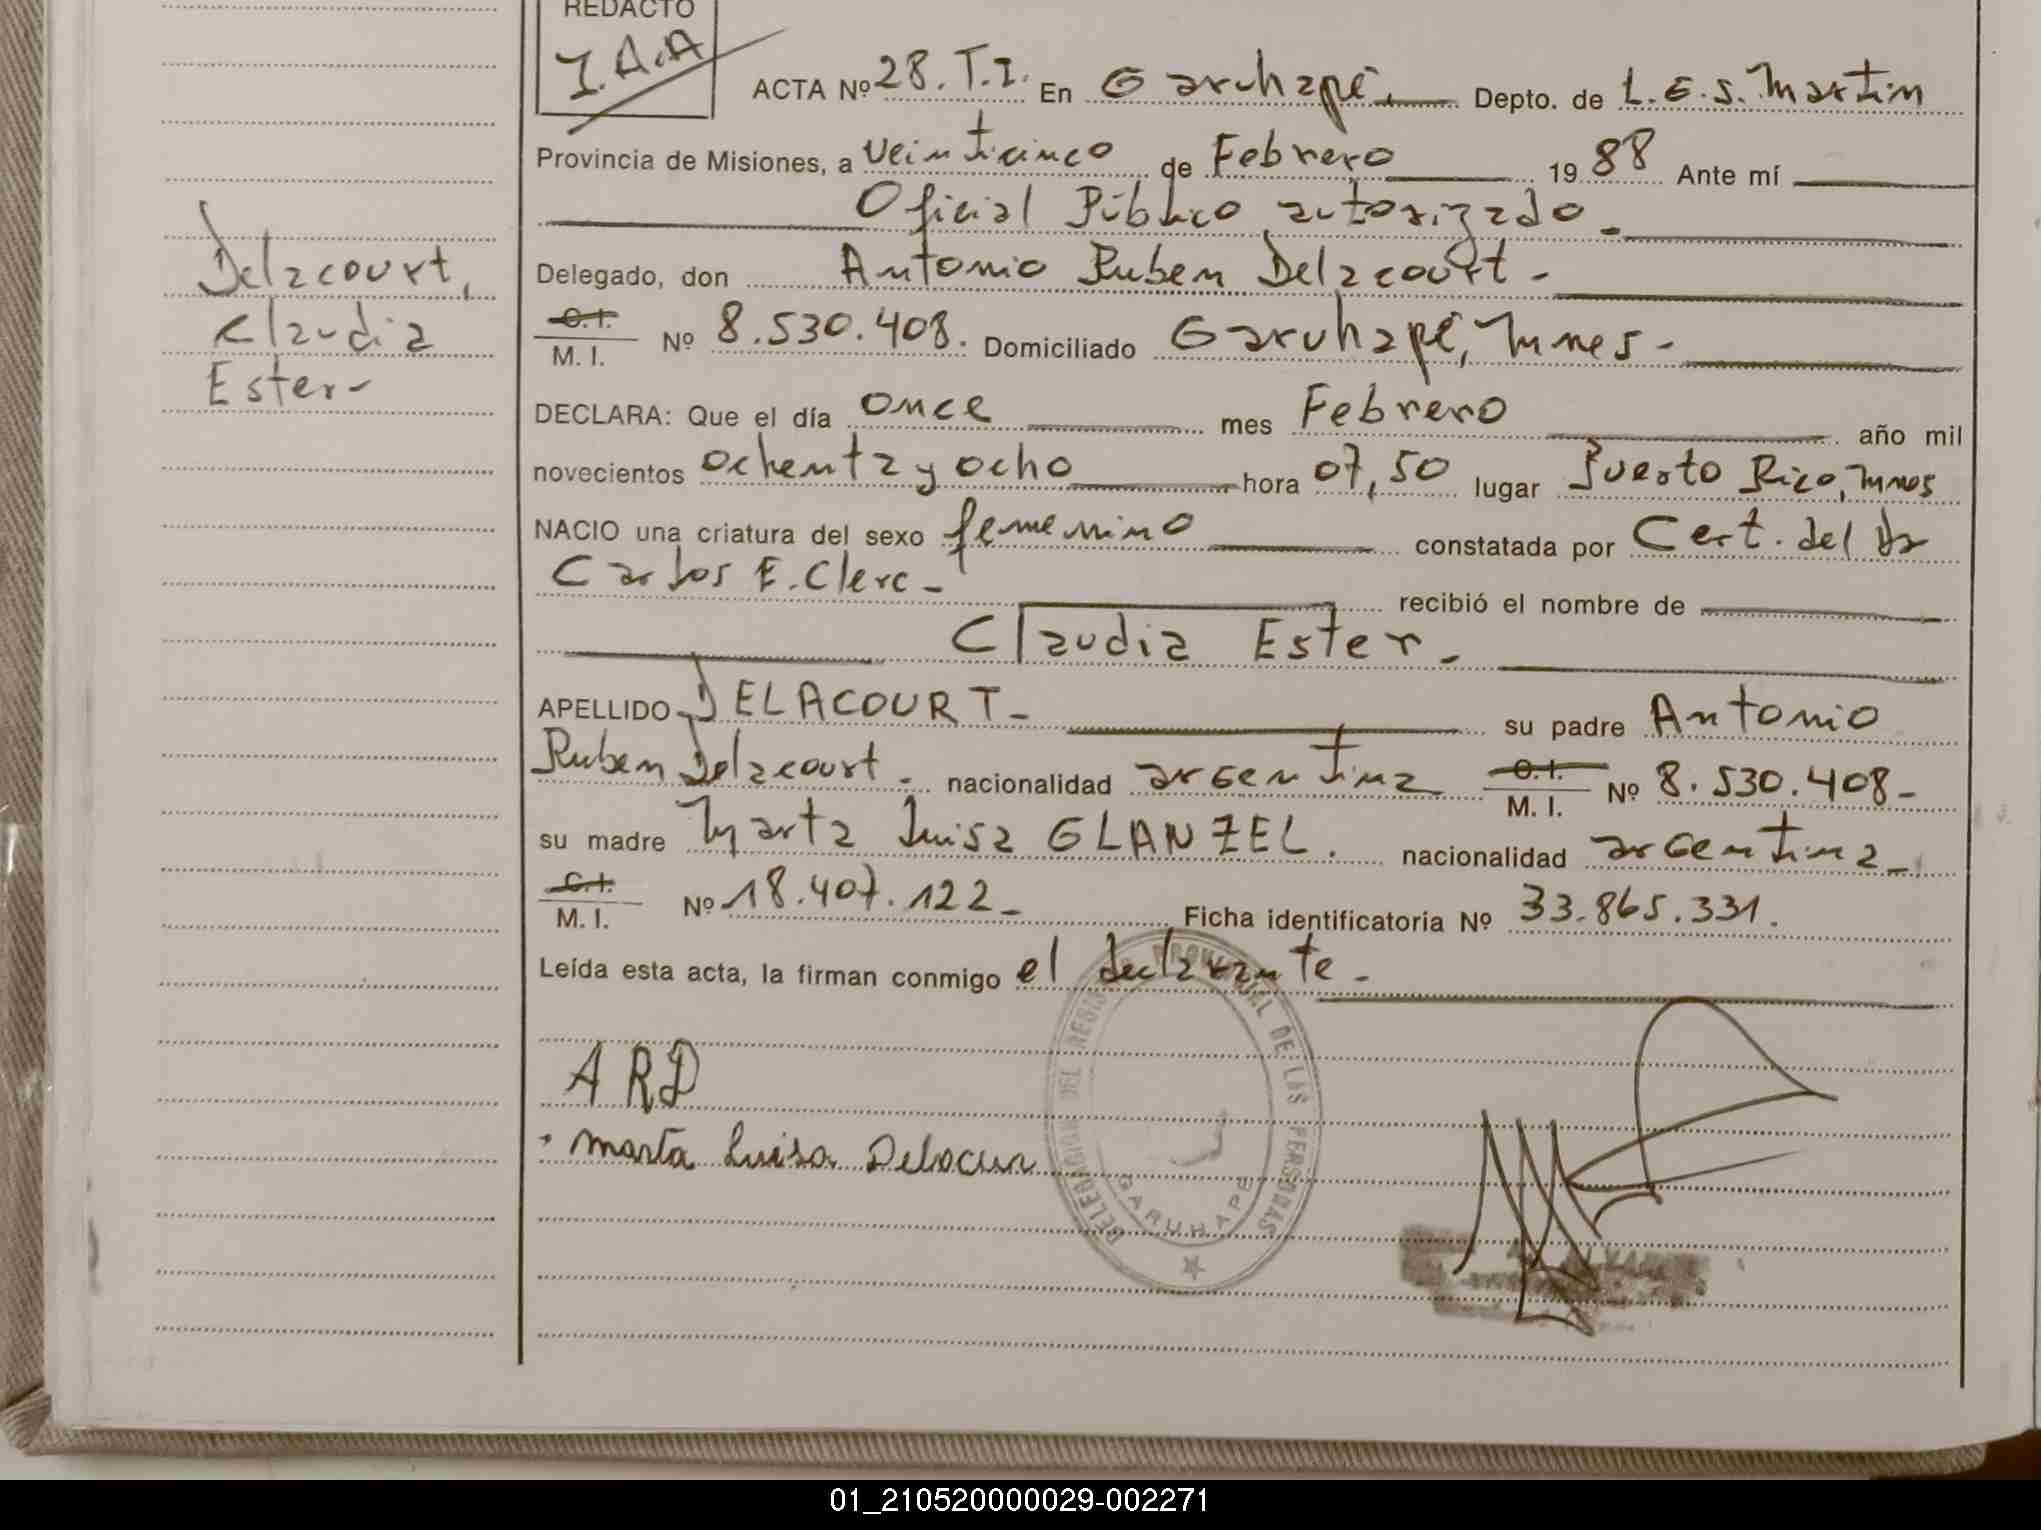 REDACTO
I.A.A
ACTA Nº 28.T.I. En Garuhapé. Depto. de L.G.S. Martin
Provincia de Misiones, a veinticinco de Febrero 1988 Ante mí
Oficial Público autorizado.
Delacourt,
Claudia
Ester-
Delegado, don Antonio Ruben Delacourt.-
C.I.
M. I. Nº 8.530.408. Domiciliado Garuhapé, Mnes-
DECLARA: Que el día once mes Febrero año mil
novecientos ochenta y ocho hora 07,50 lugar Puerto Rico, Mnes
NACIO una criatura del sexo femenino constatada por Cert. del Dr
Carlos E. Clerc- recibió el nombre de
Claudia Ester.-
APELLIDO DELACOURT- su padre Antonio
Ruben Delacourt. nacionalidad argentina C.I.
M. I. Nº 8.530.408-
su madre Marta Luisa GLANZEL. nacionalidad argentina-
C.I.
M. I. Nº 18.407.122- Ficha identificatoria Nº 33.865.331.
Leída esta acta, la firman conmigo el declarante-
DELEGACION DEL REGISTRO PROVINCIAL DE LAS PERSONAS
GARUHAPE
ARD
Marta Luisa Delacur
01_210520000029-002271